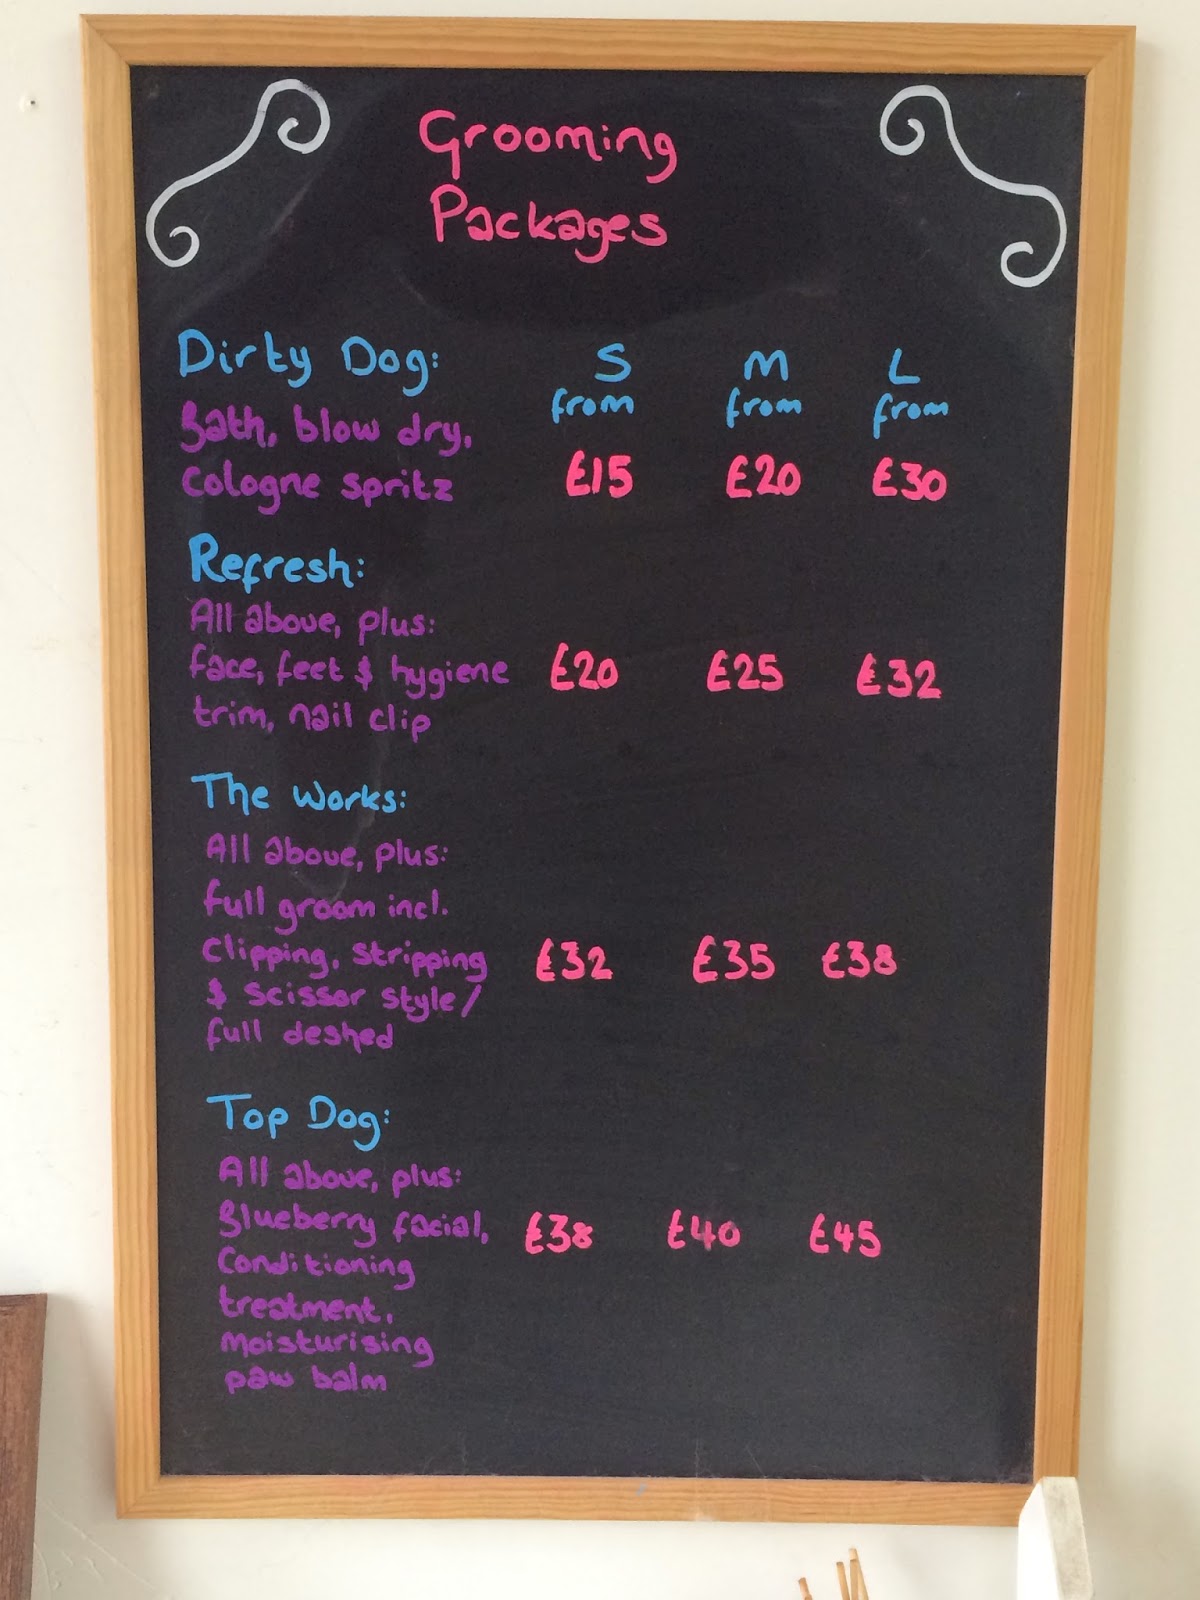 Grooming
Packages
Dirty Dog: S M L
from from from
Bath, blow dry,
Cologne spritz £15 £20 £30
Refresh:
All above, plus:
face, feet & hygiene £20 £25 £32
trim, nail clip
The Works:
All above, plus:
full groom incl.
Clipping, stripping £32 £35 £38
& scissor style/
full deshed
Top Dog:
All above, plus:
Blueberry facial, £38 £40 £45
Conditioning
treatment,
moisturising
paw balm